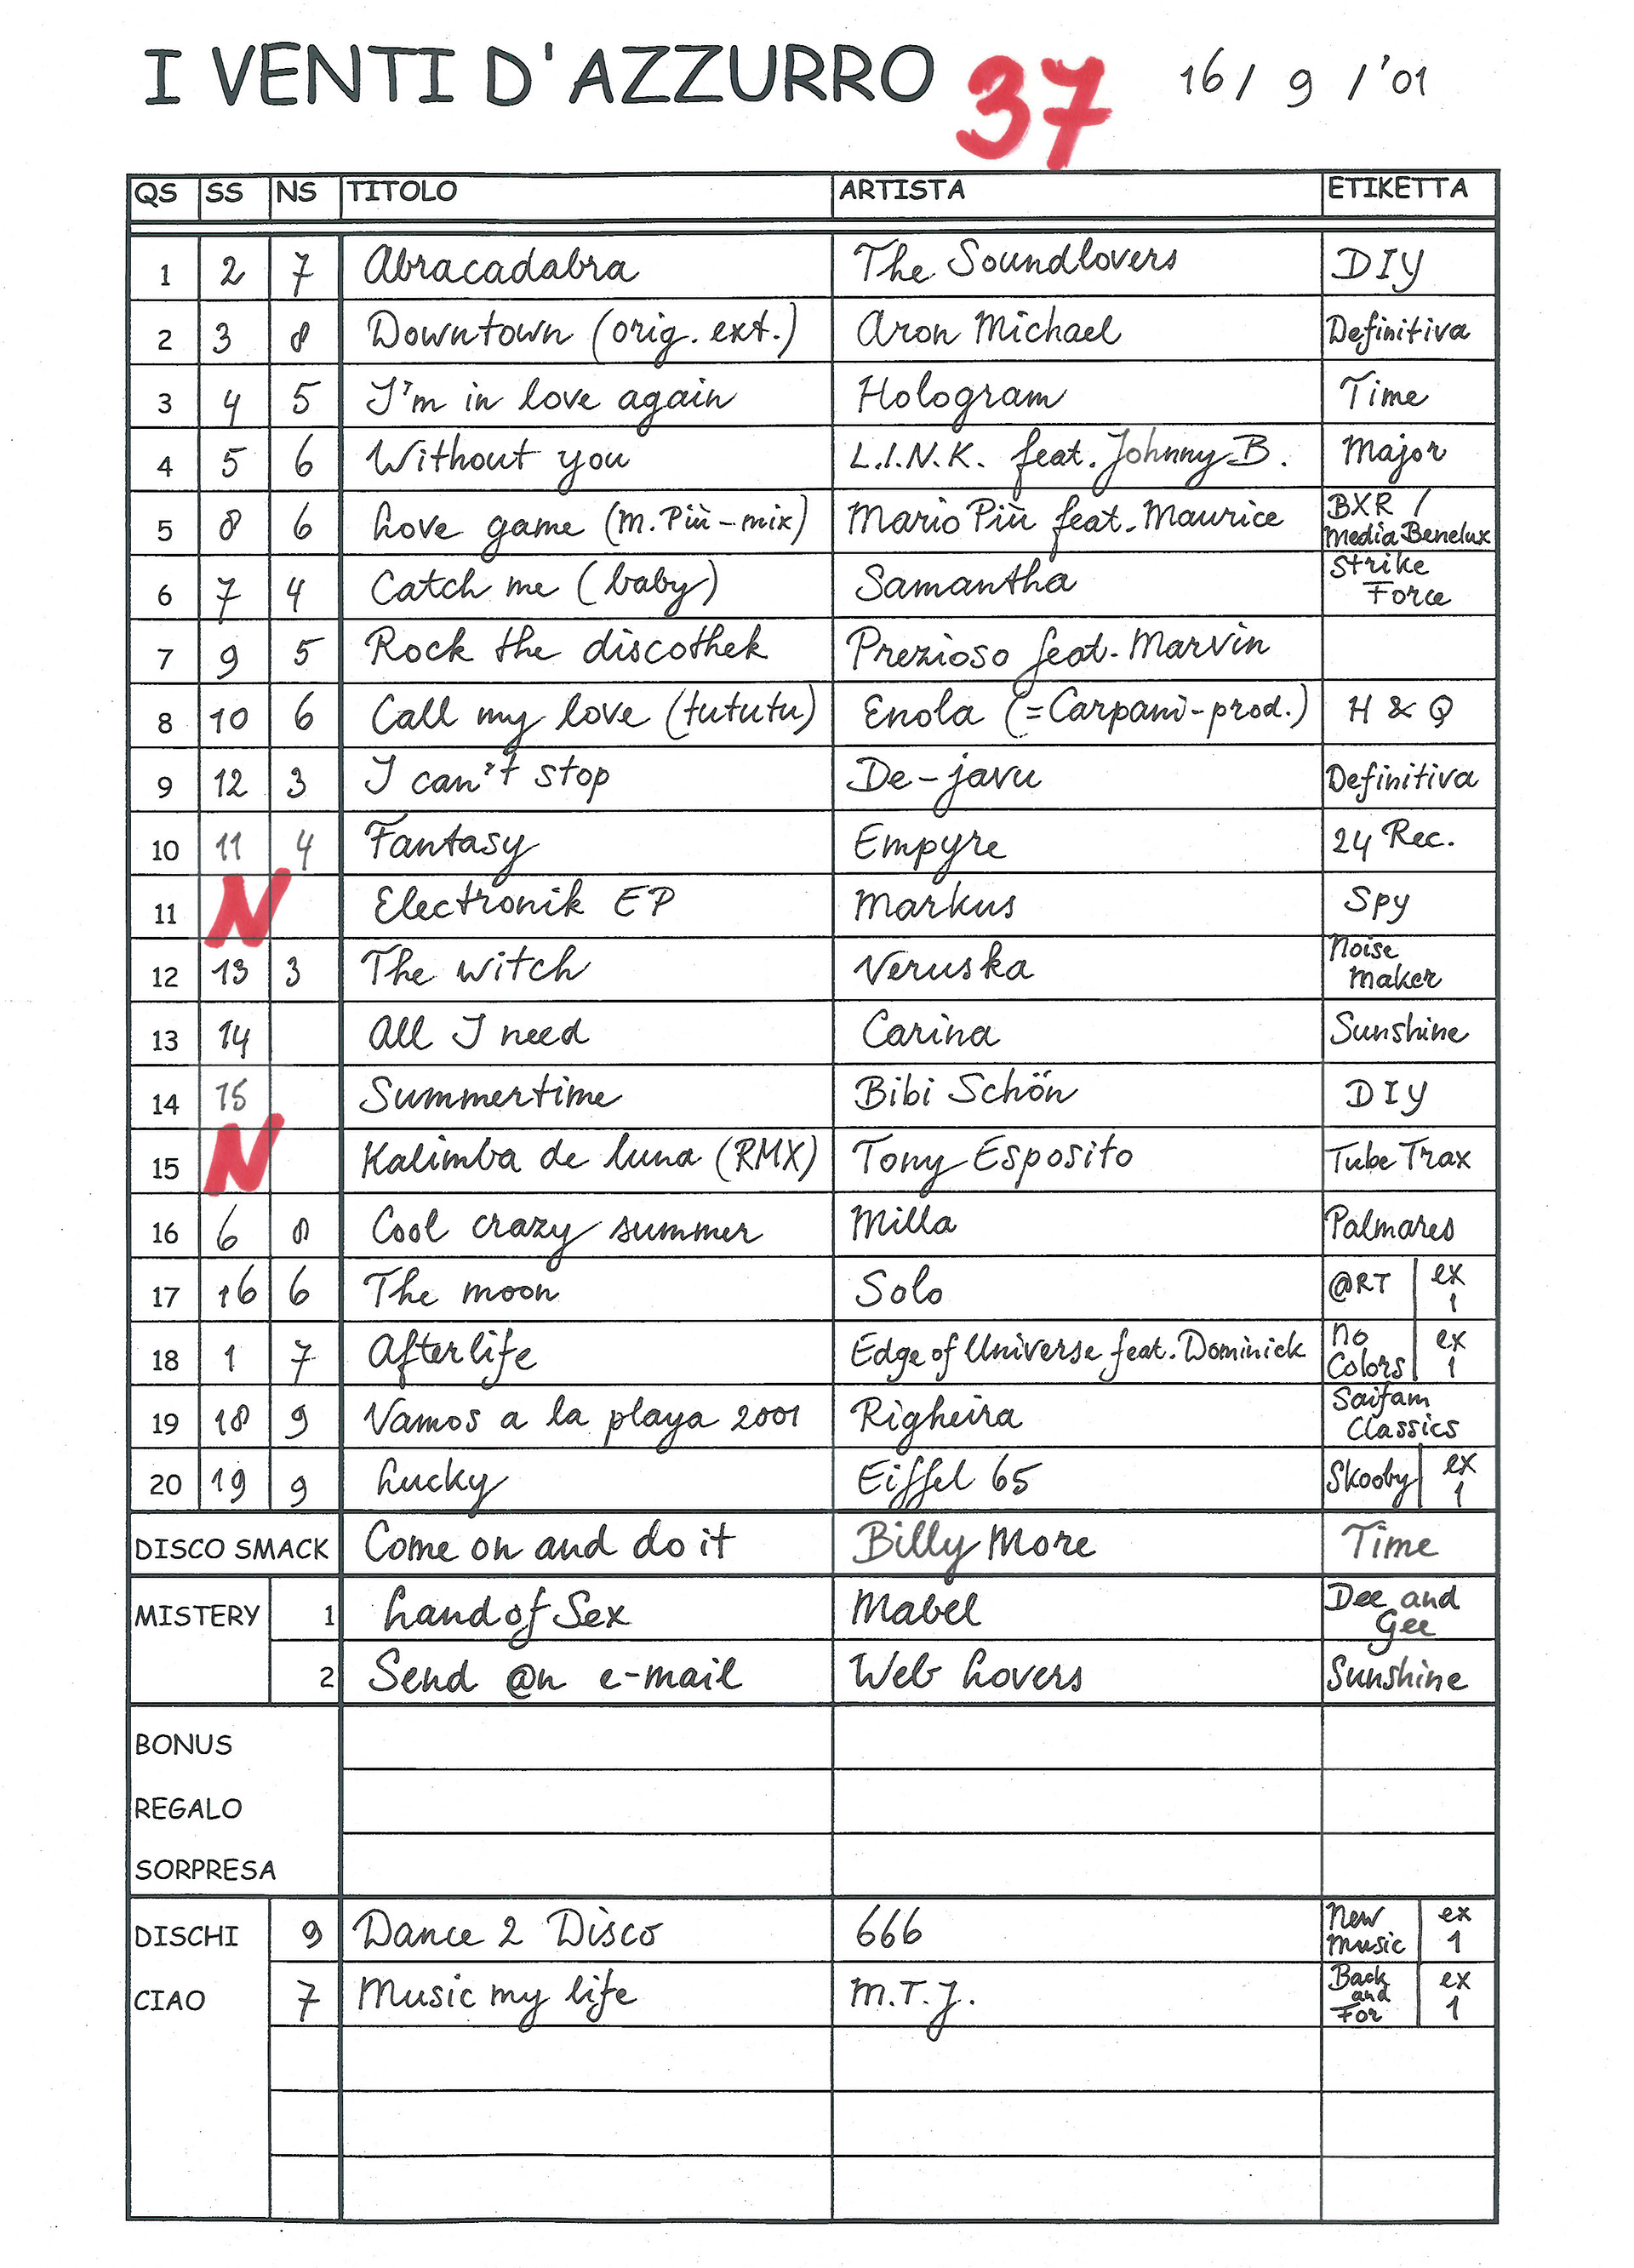 I VENTI D'AZZURRO 37 16/ 9 /'01
QS SS NS TITOLO ARTISTA ETIKETTA
1 2 7 Abracadabra The Soundlovers DIY
2 3 8 Downtown (orig. ext.) Aron Michael Definitiva
3 4 5 I'm in love again Hologram Time
4 5 6 Without you L.I.N.K. feat. Johnny B. Major
5 8 6 Love game (M. Più-mix) Mario Più feat. Maurice BXR / Media Benelux
6 7 4 Catch me (baby) Samantha Strike Force
7 9 5 Rock the discothek Prezioso feat. Marvin
8 10 6 Call my love (tututu) Enola (=Carpani-prod.) H & Q
9 12 3 I can't stop De-javu Definitiva
10 11 4 Fantasy Empyre 24 Rec.
11 N Electronik EP Markus Spy
12 13 3 The witch Veruska Noise Maker
13 14 All I need Carina Sunshine
14 15 Summertime Bibi Schön DIY
15 N Kalimba de luna (RMX) Tony Esposito Tube Trax
16 6 8 Cool crazy summer Milla Palmares
17 16 6 The moon Solo @RT ex 1
18 1 7 Afterlife Edge of Universe feat. Dominick No Colors ex 1
19 18 9 Vamos a la playa 2001 Righeira Saifam Classics
20 19 9 Lucky Eiffel 65 Skooby ex 1
DISCO SMACK Come on and do it Billy More Time
MISTERY 1 Land of Sex Mabel Dee and Gee
2 Send @n e-mail Web Lovers Sunshine
BONUS
REGALO
SORPRESA
DISCHI 9 Dance 2 Disco 666 New Music ex 1
CIAO 7 Music my life M.T.J. Back and For ex 1